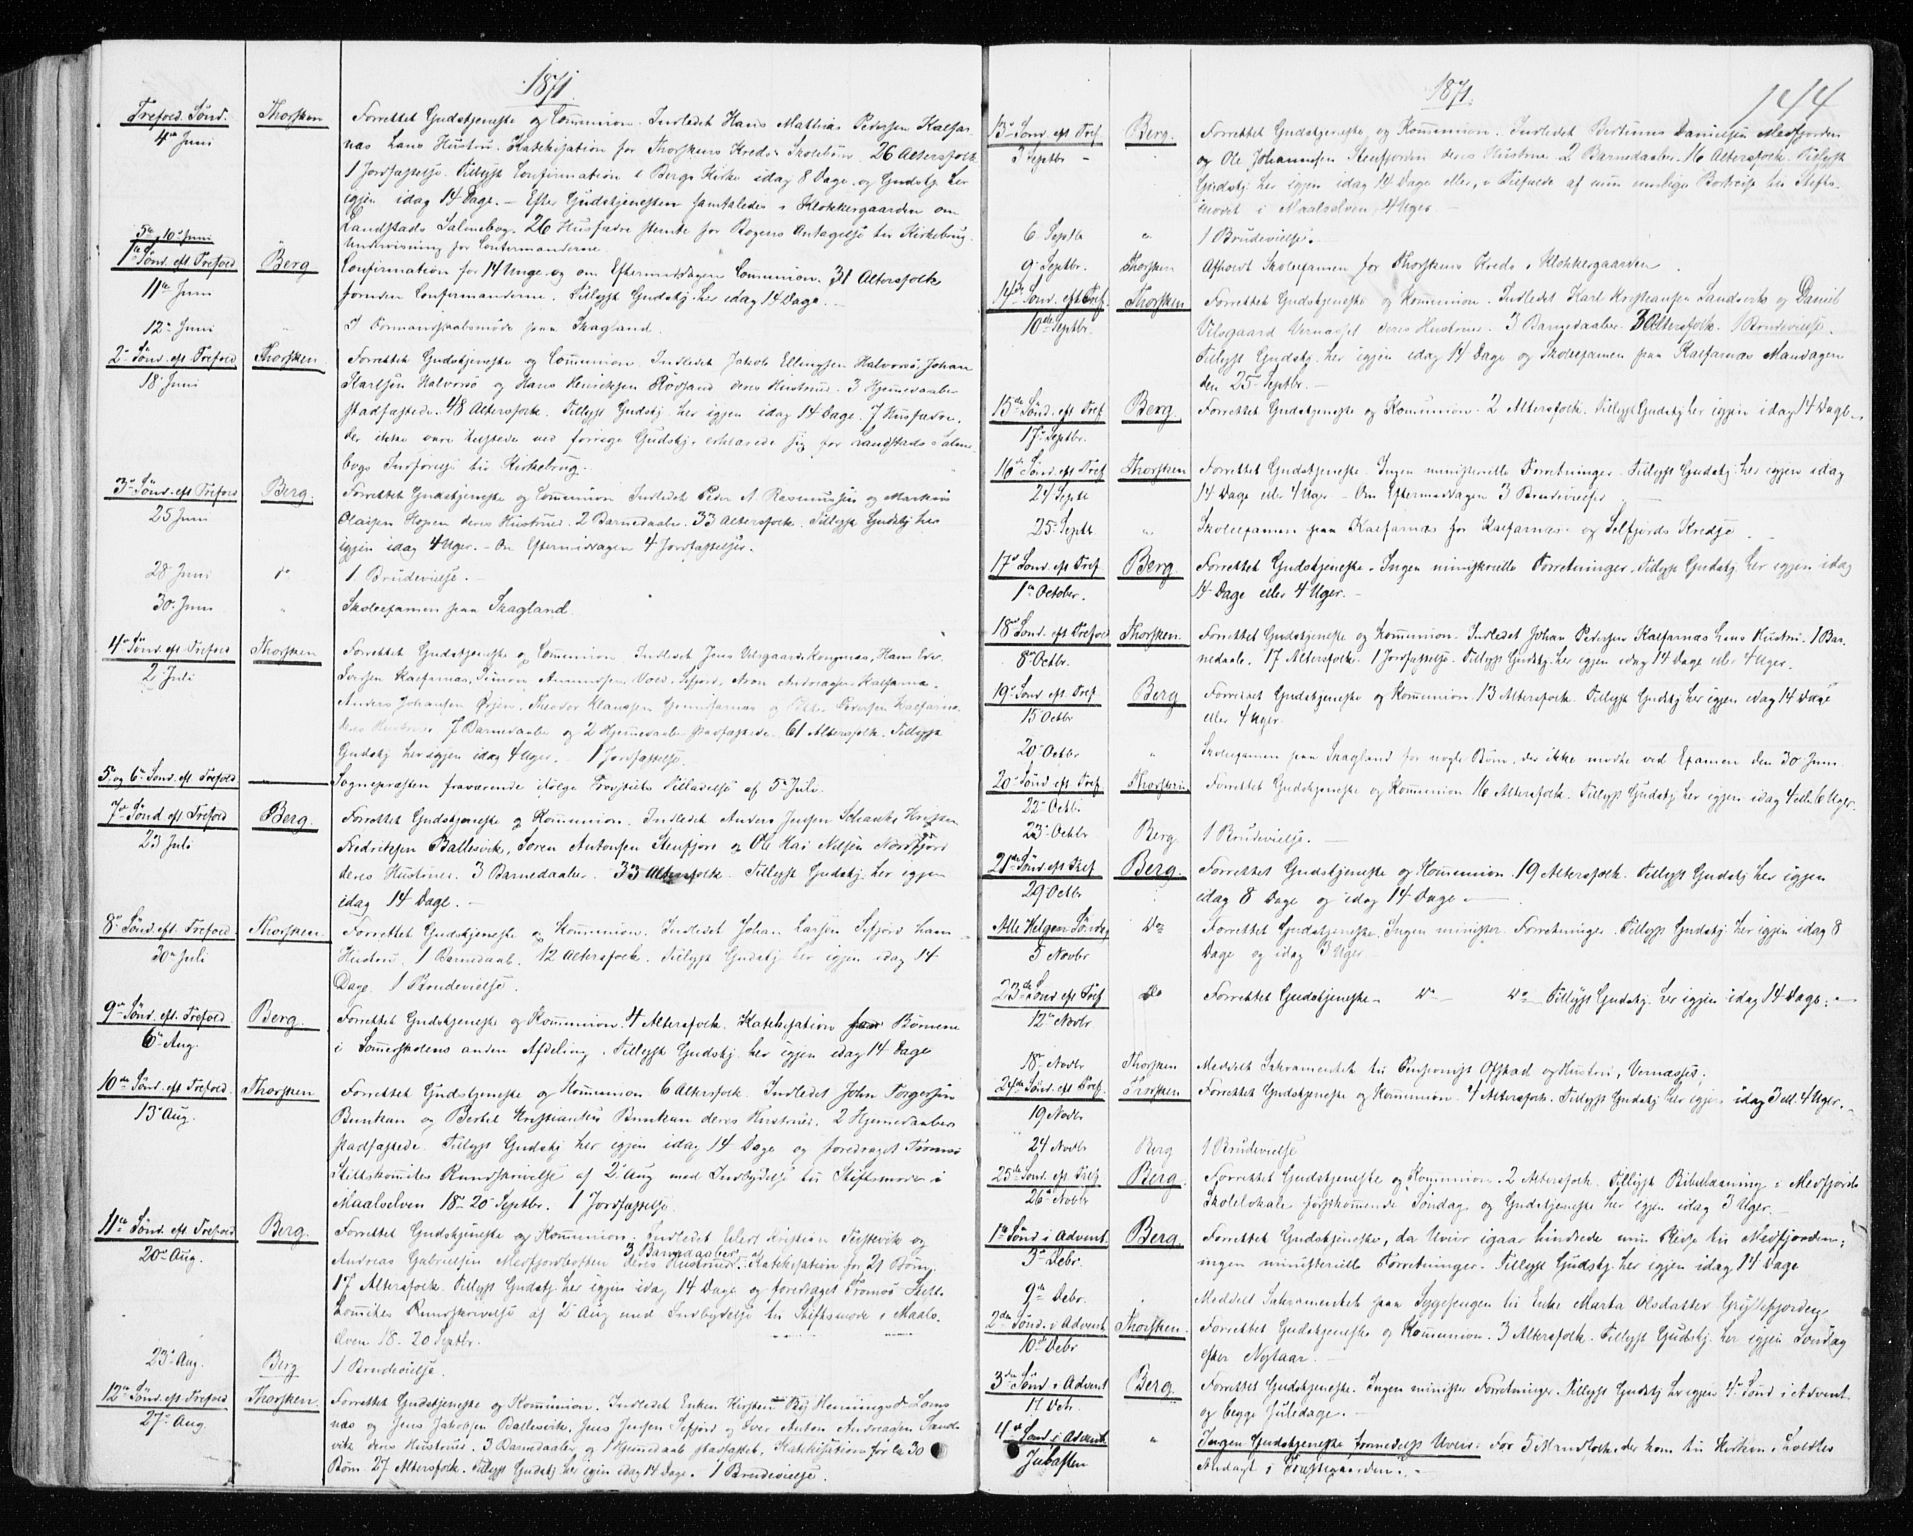 1871.
Trefold. Sønd. Thorsken Forrettet Gudstjeneste og Communion. Indledet Hans Mathias Pedersen Kalfar-
4de Juni næs hans Hustru. Katekisation for Thorskens Kreds Skolebørn. 26 Altersfolk.
1 Jordfæstelse. Tillyst Confirmation i Bergs Kirke idag 8 Dage og Gudstj. her
igjen idag 14 Dage. - Efter Gudstjenesten samtaledes i Klokkergaarden om
Landstads Salmebog. 26 Husfædre stemte for Bogens Antagelse til Kirkebrug.
5te, 10de Juni Undervisning for Confirmanderne
1ste Sønd. eft Trefold Berg Confirmation for 14 Unge og om Eftermiddagen Communion. 31 Altersfolk
11te Juni foruden Confirmanderne. Tillyst Gudstj. her idag 14 Dage. -
12te Juni " I Formandskabsmøde paa Skagland.
2den Sønd. eft Trefold Thorsken. Forrettet Gudstjeneste og Communion. Indledet Jakob Ellingsen Halvorsø, Johan
18. Juni Karlsen Halvorsø og Hans Henriksen Rødsand deres Hustruer. 3 Hjemmedaaber
stadfæstede. 48 Altersfolk. Tillyst Gudstj. her igjen idag 14 Dage. 7 Husfædre,
der ikke vare tilstede ved forrige Gudstj. erklærede sig for Landstads Salme
bogs Indførelse til Kirkebrug.
3die Sønd. eft Trefold Berg. Forrettet Gudstjeneste og Communion. Indledet Peder A. Rasmussen og Markus
25 Juni Olaisen Hopen deres Hustruer. 2 Barnedaaber. 33 Altersfolk. Tillyst Gudstj. her
igjen idag 4 Uger. - Om Eftermiddagen 4 Jordfæstelser.
28 Juni do 1 Brudevielse. -
30. Juni " Skoleexamen paa Skagland.
4de Sønd. eft Trefold Thorsken Forrettet Gudstjeneste og Communion. Indledet Jens Kongsnæs, Hans
2 Juli Kalfarnæs, Simon Sefjord, Aron Andreasen Kalfarnæs
Anders Johansen Theodor Klaussen og Pedersen Kalfarnæs
deres Hustruer 7 Barnedaaber og 2 Hjemmedaaber stadfæstede. 61 Altersfolk. Tillyst
Gudstj. her igjen idag 4 Uger. - 1 Jordfæstelse.
5te og 6te Sønd. eft Trefold Sognepræsten fraværende ifølge Provstiets Tilladelse af 5te Juli.
7de Sønd eft Trefold Berg. Forrettet Gudstjeneste og Kommunion. Indledet Anders Jensen
23 Juli Fredriksen Ballesvik, Søren Antonsen Stenfjord og Ole Nilsen Nordfjord
deres Hustruer. 3 Barnedaaber. 33 Altersfolk. Tillyst Gudstj. her igjen
idag 14 Dage. -
8de Sønd. eft. Trefold Thorsken. Forrettet Gudstjeneste og Kommunion. Indledet Johan Larsen Sefjord hans
30te Juli Hustru. 1 Barnedaab. 12 Altersfolk. Tillyst Gudstj. her igjen idag 14
Dage. 1 Brudevielse.
9de Sønd. eft. Trefold Berg. Forrettet Gudstjeneste og Kommunion. 4 Altersfolk. Katekisation for Børnene
6te Aug. i Sommerskolens anden Afdeling. Tillyst Gudstj. her igjen idag 14 Dage
10de Sønd. eft Trefold. Thorsken Forrettet Gudstjeneste og Kommunion 6 Altersfolk. Indledet John Torgersen
13de Aug. Bunkan og Bertel Kristiansen Bunkan deres Hustruer. 2 Hjemmedaaber
stadfæstede. Tillyst Gudstj her igjen idag 14 Dage og foredraget Tromsø
Stiftskomites Rundskrivelse af 2 Aug med Indbydelse til Stiftsmøde i
Maalselven 18-20 Septbr. 1 Jordfæstelse.
11te Sønd. eft Trefold Berg. Forrettet Gudstjeneste og Kommunion. Indledet Edvard Kristian og
20de Aug. Andreas Gabrielsen Medfjordbotten deres Hustruer. 3 Barnedaaber. Katekisation for 21 Børn.
17 Altersfolk. Tillyst Gudstj. her igjen idag 14 Dage og foredraget Tromsø Stifts
komites Rundskrivelse af 2 Aug med Indbydelse til Stiftsmøde i Maals-
elven 18-20 Septbr.
23de Aug. Berg 1 Brudevielse.
12te Sønd. eft Trefold Thorsken. Forrettet Gudstjeneste og Kommunion. Indledet Enken Kirsten Henningsd.
27. Aug. og Jens Jakobsen Ballesvik, Jens Jensen Sefjord og Iver Anton Andreasen Sand-
vik deres Hustruer. 3 Barnedaaber og 1 Hjemmedaab stadfæstet. Katekisation for ca 30
Børn 27 Altersfolk. Tillyst Gudstj. her igjen idag 14 Dage. 1 Brudevielse.
1871. 144
13de Sønd. eft Tref. Berg. Forrettet Gudstjeneste og Kommunion. Indledet Bertinus Danielsen Medfjorden
3 Septbr - og Ole Johannesen Stenfjorden deres Hustruer 2 Barnedaaber. 16 Altersfolk. Tillyst
Gudstj. her igjen idag 14 Dage eller, i Tilfælde af min mulige Bortreise til Stifts-
mødet i Maalselven, 4 Uger. -
6 Septb " 1 Brudevielse. -
9 Septbr. Thorsken Afholdt Skoleexamen for Thorskens Kreds i Klokkergaarden.
14de Sønd. eft Tref. Thorsken Forrettet Gudstjeneste og Kommunion. Indledet Karl Kristiansen Sandvik og Daniel
10de Septbr. Vernæset deres Hustruer. 3 Barnedaaber. 3 Altersfolk. 1 Brudevielse.
Tillyst Gudstj. her igjen idag 14 Dage og Skoleexamen paa Kalfarnæs Mandagen
den 25 Septbr. -
15de Sønd. eft Tref Berg Forrettet Gudstjeneste og Kommunion. 2 Altersfolk. Tillyst Gudstj her igjen idag 14 Dage.
17de Septbr.
16de Sønd. eft Tref Thorsken Forrettet Gudstjeneste. Ingen ministerielle Forretninger. Tillyst Gudstj. her igjen idag
24 Septb 14 Dage eller 4 Uger - Om Eftermiddagen 3 Brudevielser
25 Septb " Skoleexamen paa Kalfarnæs for Kalfarnæs og Selfjords Kredse.
17de Sønd. eft Tref. Berg. Forrettet Gudstjeneste. Ingen ministerielle Forretninger. Tillyst Gudstj. her igjen idag
1ste October. 14 Dage eller 4 Uger. -
18de Sønd. eft Trefold Thorsken. Forrettet Gudstjeneste og Kommunion. Indledet Johan Pedersen Kalfarnæs hans Hustru. 1 Bar-
8de Octbr. nedaab. 17 Altersfolk. 1 Jordfæstelse. Tillyst Gudstj. her igjen idag 14 Dage eller 4 Uger.
19de Sønd eft Tref. Berg Forrettet Gudstjeneste og Kommunion. 13 Altersfolk. Tillyst Gudstj. her igjen idag 14 Dage
15 Octbr eller 4 Uger.
20 Octbr " Skoleexamen paa Skagland for nogle Børn, der ikke mødte ved Examen den 30 Juni.
20de Sønd eft Tref. Thorsken Forrettet Gudstjeneste og Kommunion 16 Altersfolk. Tillyst Gudstj. her igjen idag 4 ell. 6 Uger.
22 Octbr
23 Octbr Berg. 1 Brudevielse. -
21de Sønd eft Tref. Berg. Forrettet Gudstjeneste og Kommunion. 19 Altersfolk. Tillyst Gudstj her igjen
29 Octbr idag 8 Dage og idag 14 Dage. -
Alle Helgens Søndag Do Forrettet Gudstjeneste. Ingen minister. Forretninger. Tillyst Gudstj. her igjen idag 8
5 Novbr Dage og idag 3 Uger -
23de Sønd eft Tref. Do Forrettet Gudstjeneste. Do Do Tillyst Gudstj. her igjen idag 14 Dage. -
12te Novbr.
18de Novbr Thorsken Meddelt Sakramentet til Offstad og Hustru, Vernæsset.
24de Sønd. eft Tref. Thorsken Forrettet Gudstjeneste og Kommunion. 4 Altersfolk. Tillyst Gudstj her igjen idag 3 ell. 4 Uger. -
19 Novbr
24 Novbr Berg 1 Brudevielse
25de Sønd. eft Tref. Berg. Forrettet Gudstjeneste og Kommunion. 2 Altersfolk. Tillyst Bibellæsning i Medfjords
26de Novbr Skolelokale førstkommende Søndag og Gudstjeneste her igjen idag 3 Uger. -
1ste Sønd i Advent. Berg. Forrettet Gudstjeneste, da Uveir igaar hindrede min Reise til Medfjorden;
3die Debr. ingen ministerielle Forretninger. Tillyst Gudstj. her igjen idag 14 Dage
9de Debr. Meddelt Sakramentet paa Sygesengen til Enke Marta Olsdatter Gryllefjorden
2den Sønd. i Advent Thorsken. Forrettet Gudstjeneste og Kommunion. 3 Altersfolk. Tillyst Gudstj. her igjen Søndag
10de Debr efter Nytaar. -
3die Sønd i Advent Berg. Forrettet Gudstjeneste. Ingen ministr. Forretninger. Tillyst Gudstj her igjen 4de Sønd i Advent
17 Debr. og begge Juledage. -
4de Sønd i Advent " Ingen Gudstjeneste formedelst Uveir. For 5 Mandfolk, der kom til Kirken, holdtes
Juleaften Andagt i Præstegaarden. -